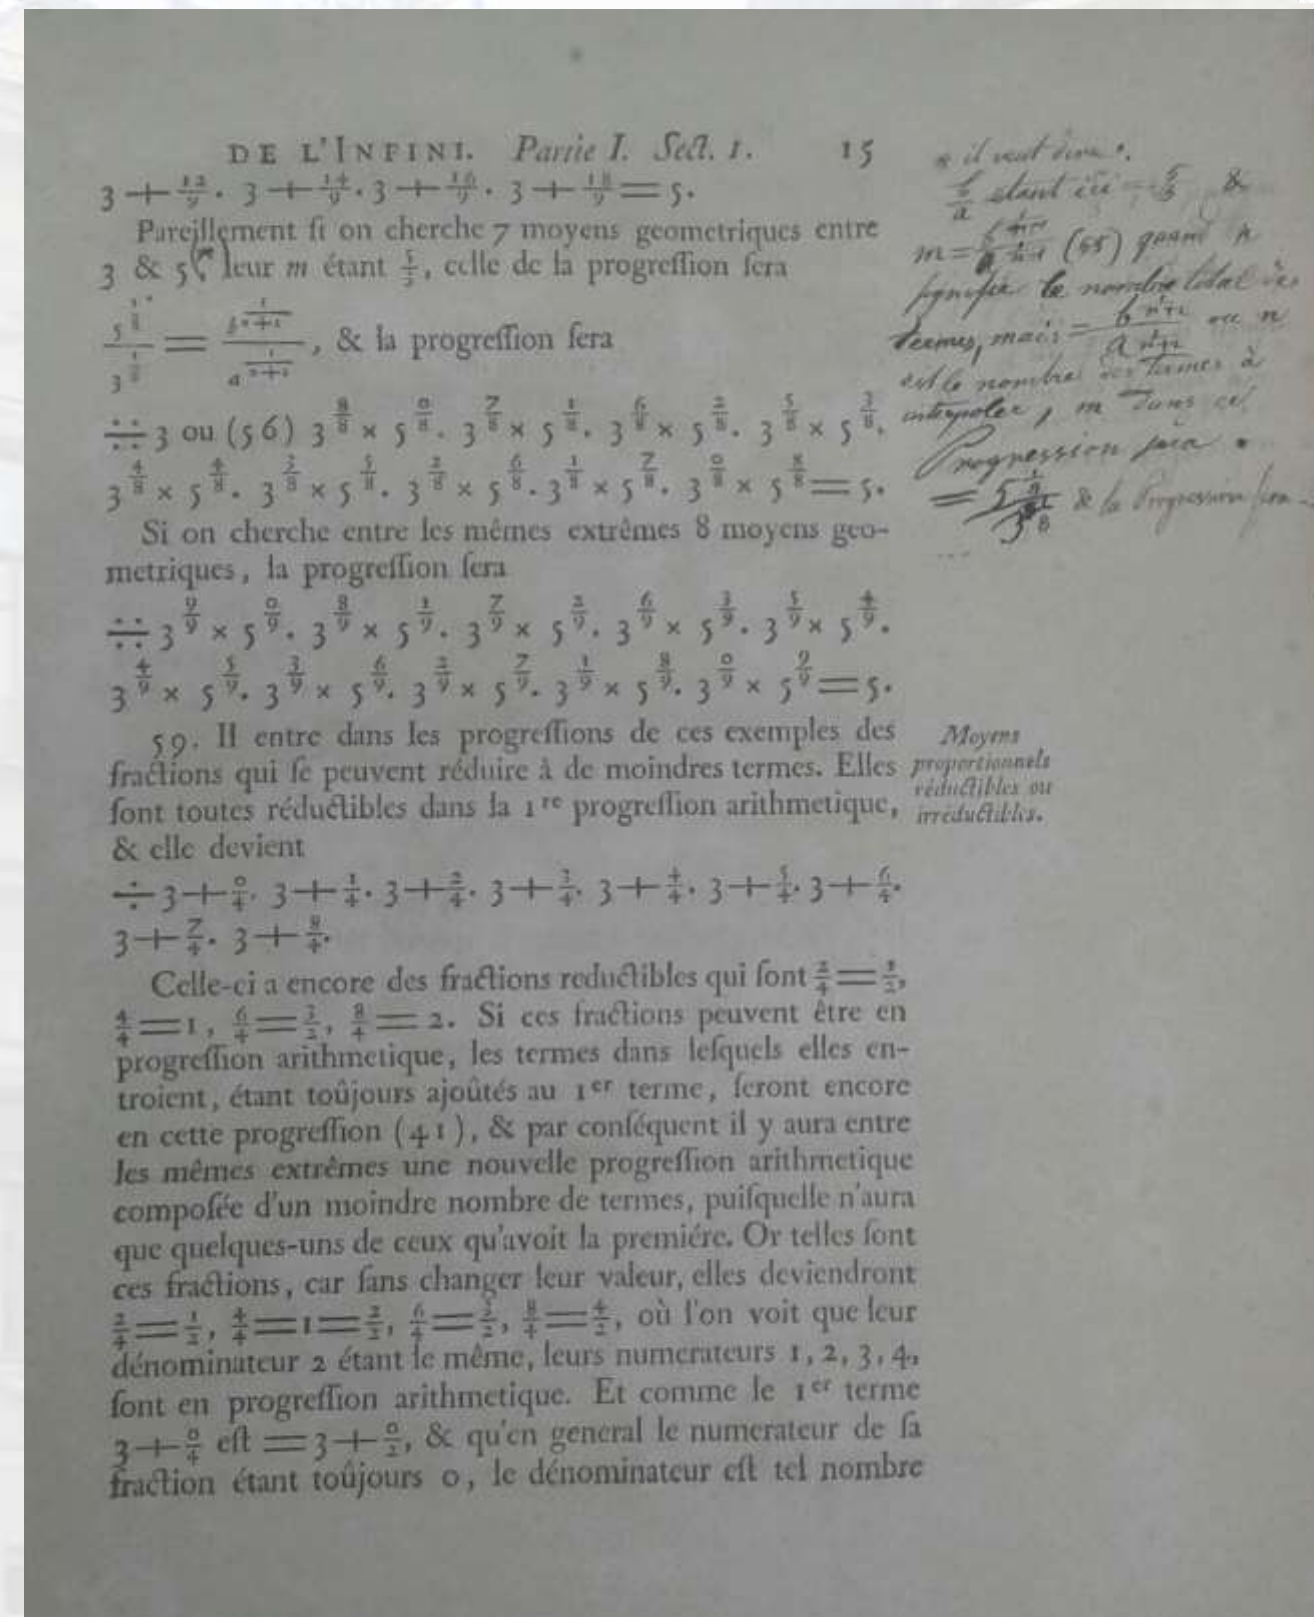 DE L'INFINI. Partie I. Sect. 1. 15
3 + 12/9 . 3 + 14/9 . 3 + 16/9 . 3 + 18/9 = 5.
Pareillement ſi on cherche 7 moyens geometriques entre
3 & 5, leur m étant 5/3, celle de la progreſſion ſera
5^{1/8} / 3^{1/8} = b^{1/(n+1)} / a^{1/(n+1)}, & la progreſſion ſera
÷÷ 3 ou (56) 3^{8/8} × 5^{0/8} . 3^{7/8} × 5^{1/8} . 3^{6/8} × 5^{2/8} . 3^{5/8} × 5^{3/8} .
3^{4/8} × 5^{4/8} . 3^{3/8} × 5^{5/8} . 3^{2/8} × 5^{6/8} . 3^{1/8} × 5^{7/8} . 3^{0/8} × 5^{8/8} = 5.
Si on cherche entre les mêmes extrêmes 8 moyens geo-
metriques, la progreſſion ſera
÷÷ 3^{9/9} × 5^{0/9} . 3^{8/9} × 5^{1/9} . 3^{7/9} × 5^{2/9} . 3^{6/9} × 5^{3/9} . 3^{5/9} × 5^{4/9} .
3^{4/9} × 5^{5/9} . 3^{3/9} × 5^{6/9} . 3^{2/9} × 5^{7/9} . 3^{1/9} × 5^{8/9} . 3^{0/9} × 5^{9/9} = 5.
59. Il entre dans les progreſſions de ces exemples des
fractions qui ſe peuvent réduire à de moindres termes. Elles
ſont toutes réductibles dans la 1re progreſſion arithmetique,
& elle devient
÷ 3 + 0/4 . 3 + 1/4 . 3 + 2/4 . 3 + 3/4 . 3 + 4/4 . 3 + 5/4 . 3 + 6/4 .
3 + 7/4 . 3 + 8/4 .
Celle-ci a encore des fractions reductibles qui ſont 2/4 = 1/2,
4/4 = 1, 6/4 = 3/2, 8/4 = 2. Si ces fractions peuvent être en
progreſſion arithmetique, les termes dans leſquels elles en-
troient, étant toûjours ajoûtés au 1er terme, ſeront encore
en cette progreſſion (41), & par conſéquent il y aura entre
les mêmes extrêmes une nouvelle progreſſion arithmetique
compoſée d'un moindre nombre de termes, puiſquelle n'aura
que quelques-uns de ceux qu'avoit la premiére. Or telles ſont
ces fractions, car ſans changer leur valeur, elles deviendront
2/4 = 1/2, 4/4 = 1 = 2/2, 6/4 = 3/2, 8/4 = 4/2, où l'on voit que leur
dénominateur 2 étant le même, leurs numerateurs 1, 2, 3, 4,
ſont en progreſſion arithmetique. Et comme le 1er terme
3 + 0/4 eſt = 3 + 0/2, & qu'en general le numerateur de ſa
fraction étant toûjours 0, le dénominateur eſt tel nombre
il veut dire
b/a étant ici = 5/3 &
m = (55) quand n
signifie le nombre total des
termes, mais = ou n
est le nombre des Termes à
interpoler, m dans cet
Progression sera
= & la Progression sera
Moyens
proportionnels
réductibles ou
irréductibles.